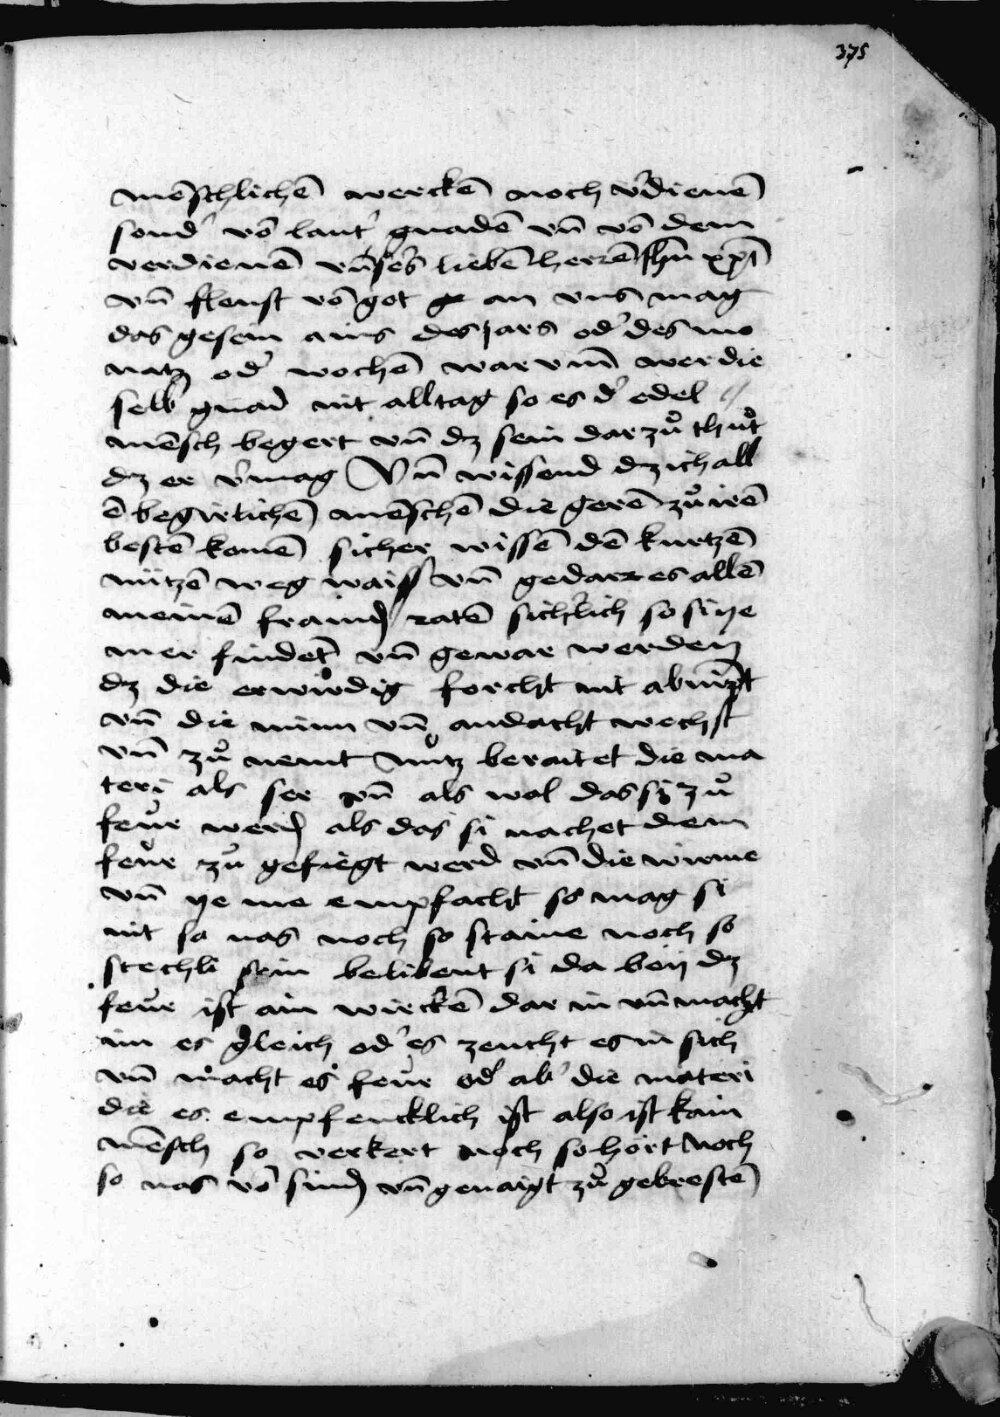 375
menschlichē wercken noch v̓dienē
sond̓ vō laut̓ gnadē vn̄ vō dem
verdienē vn̄sers liebē herrē jhū xpī
vn̄ fleust vō got an vns mag
das gesein ains des jars od̓ des mo
natz od̓ wochē warvm̄ wer die
selb gnad nit alltag so es d̓ edel
mēsch begert vn̄ dz sein darzů thůt
dz er v̓mag Vn̄ wissend dz ich all
ē begirlichē menschē die gerē zů irē
bestē komē sicher wissē dē kurtzē
nützē weg waiss vn̄ gedarr es allē
meinē fraind ratē sich̓lich so si ye
mer findet vn̄ gewar werden
dz die erwirdig forcht nit abnimpt
vn̄ die minn vn̄ andacht wechst
vn̄ zů nemt Nutz beraitet die ma
teri als ser vn̄ als wol das si zů
feůr werd als das si nachet dem
feůr zů gefiegt werd vn̄ die wirme
vn̄ ye me empfacht so mag si
nit so nas noch so staine noch so
stechli sein belibent si da beij dz
feůr ist ain wirckē dar in vn̄ macht
im es gleich od̓ es zeucht es in sich
vn̄ macht es feůr od̓ ab̓ die materi
die es empfencklich ist also ist kain
mēsch so verkert noch so hört noch
so nas vō sind vn̄ genaigt zů gebrestē